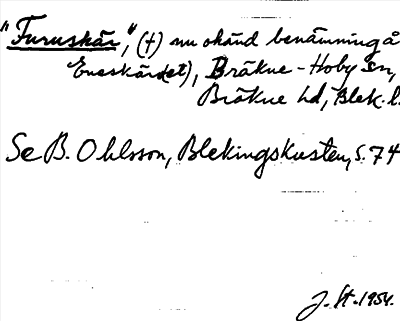 "Furuskär", (†) nu okänd benämning å
Eneskär(et), Bräkne-Hoby sn,
Bräkne hd, Blek. l.
Se B. Ohlsson, Blekingskusten, s. 74
J. St. 1954.